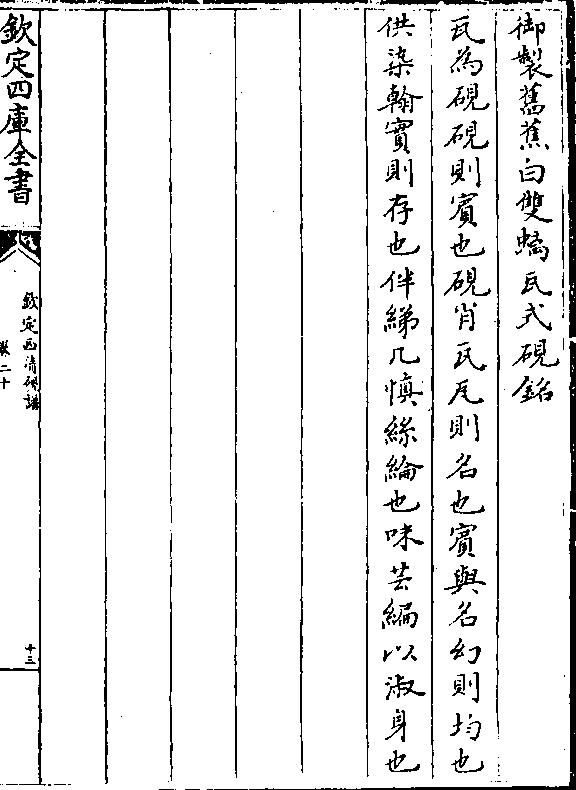 御製舊蕉白雙螭瓦式硯銘
瓦為硯硯則賓也硯肖瓦瓦則名也賓與名幻則均也
供染翰實則存也伴綈几慎絲綸也咪芸編以淑身也
欽定四庫全書
欽定西清硯譜
卷二十
十三